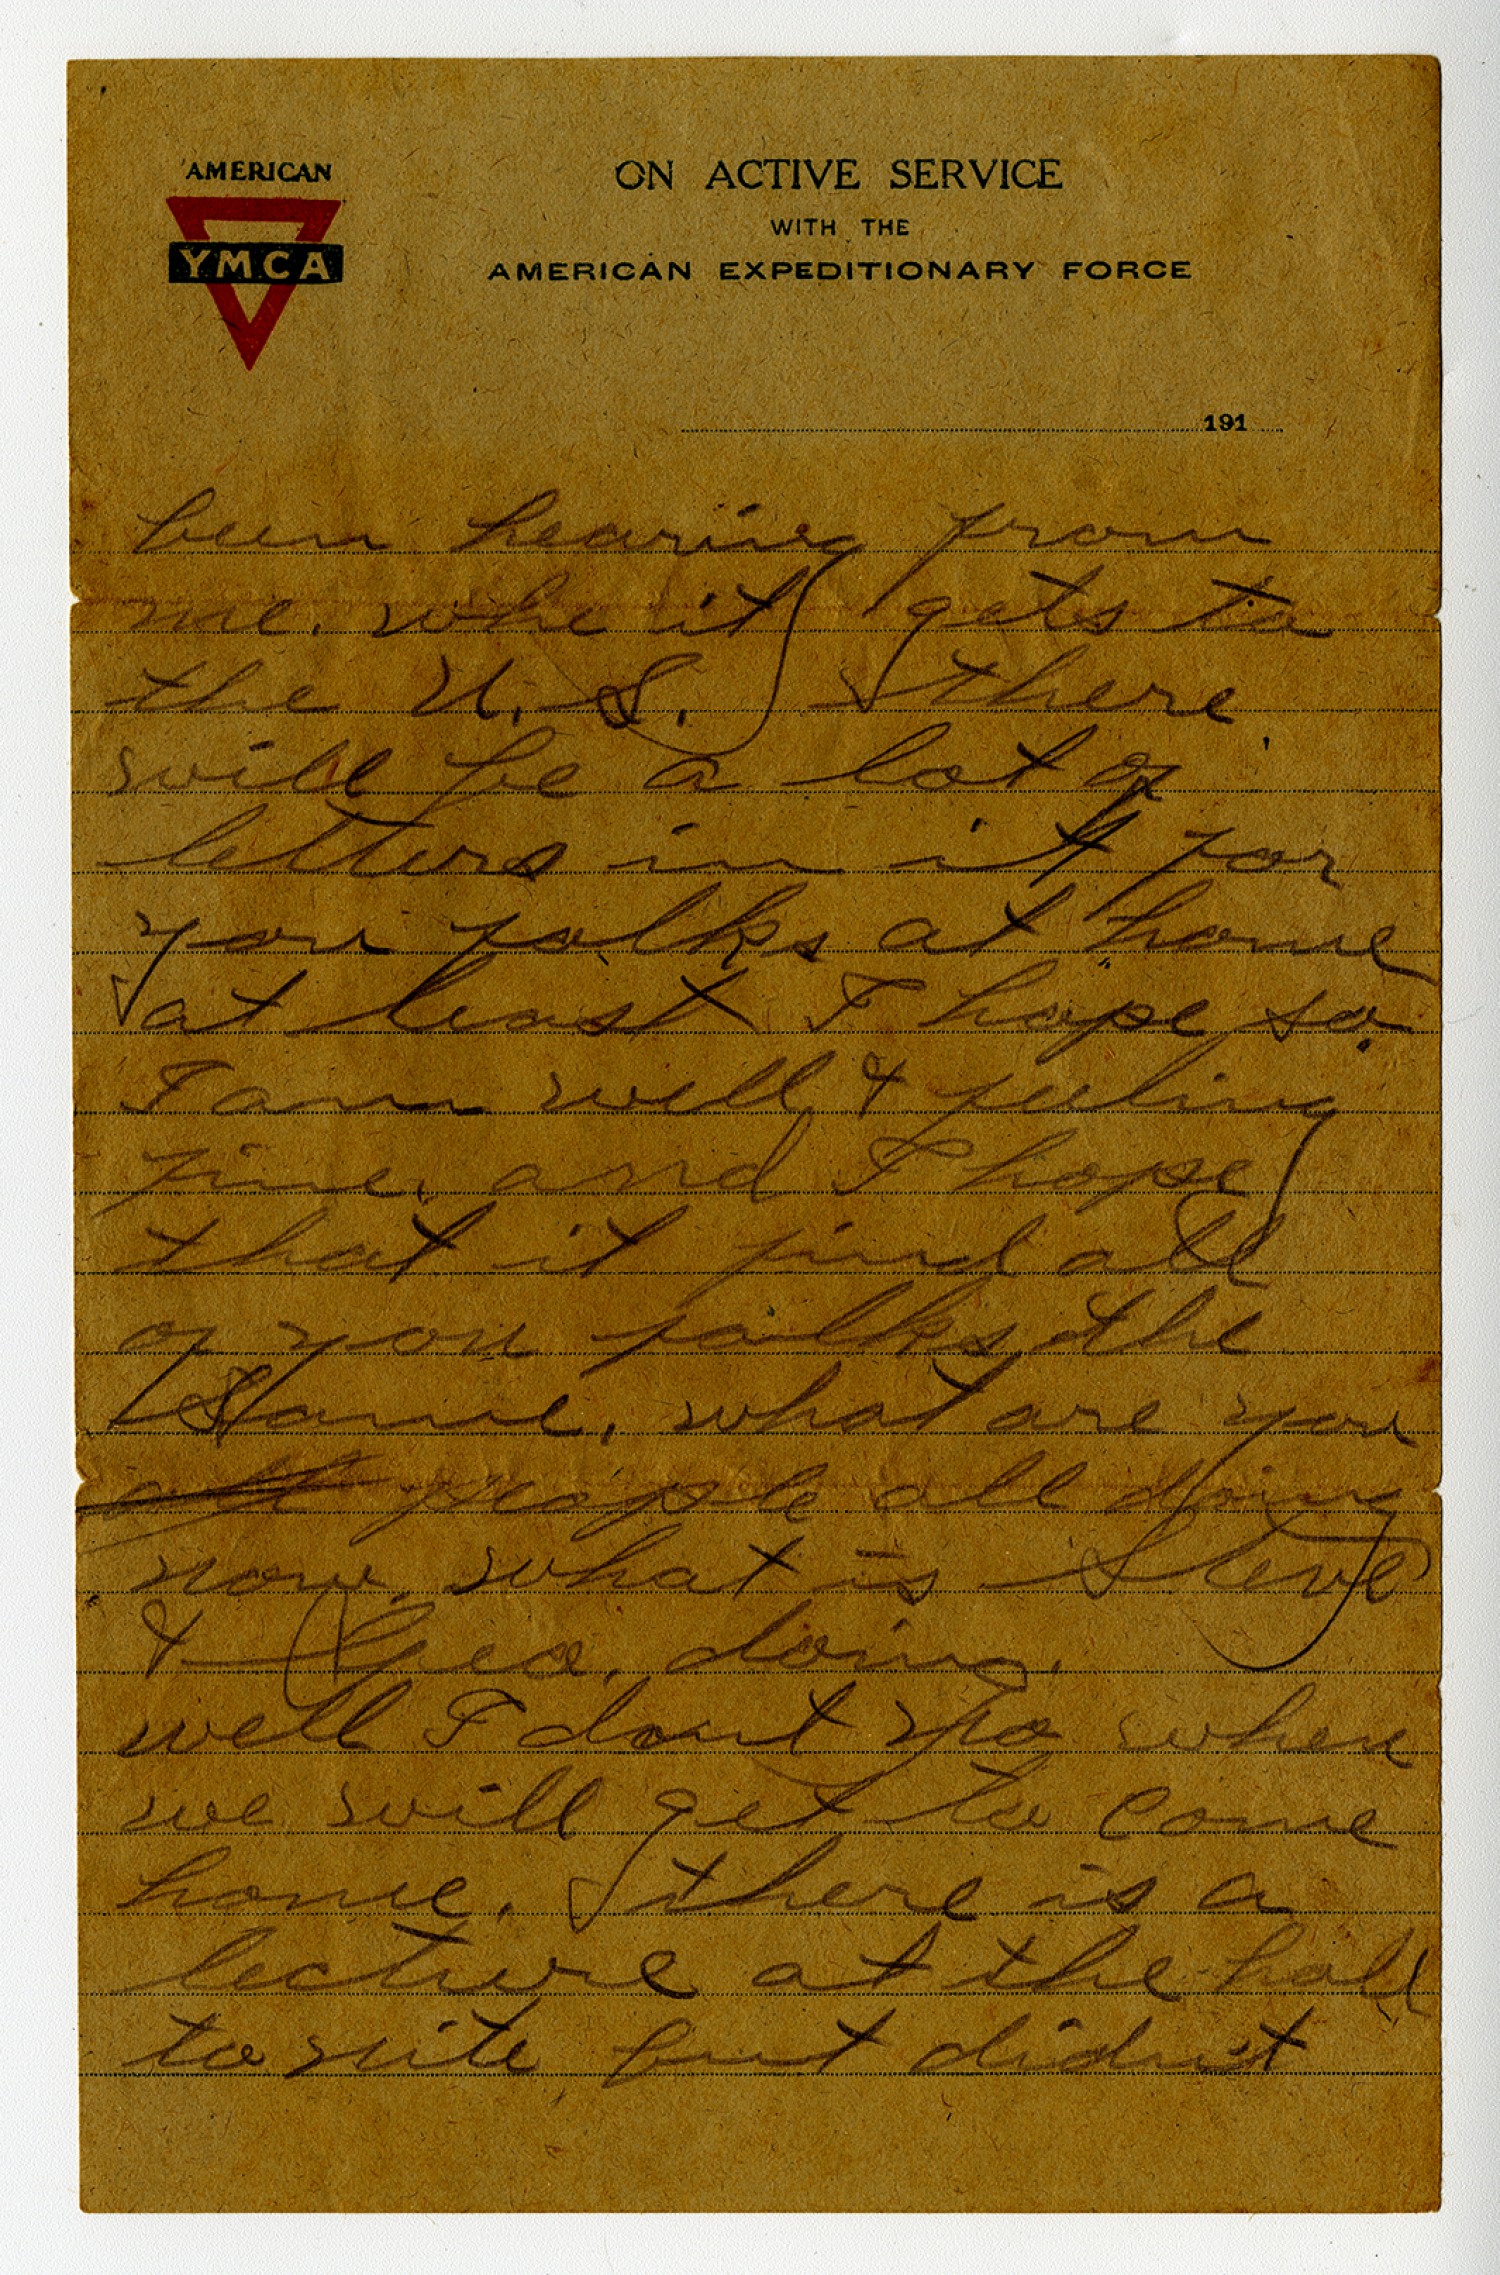 AMERICAN
YMCA
ON ACTIVE SERVICE
WITH THE
AMERICAN EXPEDITIONARY FORCE
191
been hearing from
me. whe it gets to
the U.S. there
will be a lot of
letters in it for
you folks at home
at least I hope so.
I am well & feeling
fine. and I hope
that it find all
of you folks the
Same. what are you
all people all doing
now. what is Steve
& Geo. doing.
well I dont no when
we will get to come
home. there is a
lecture at the hall
to nite but didnt